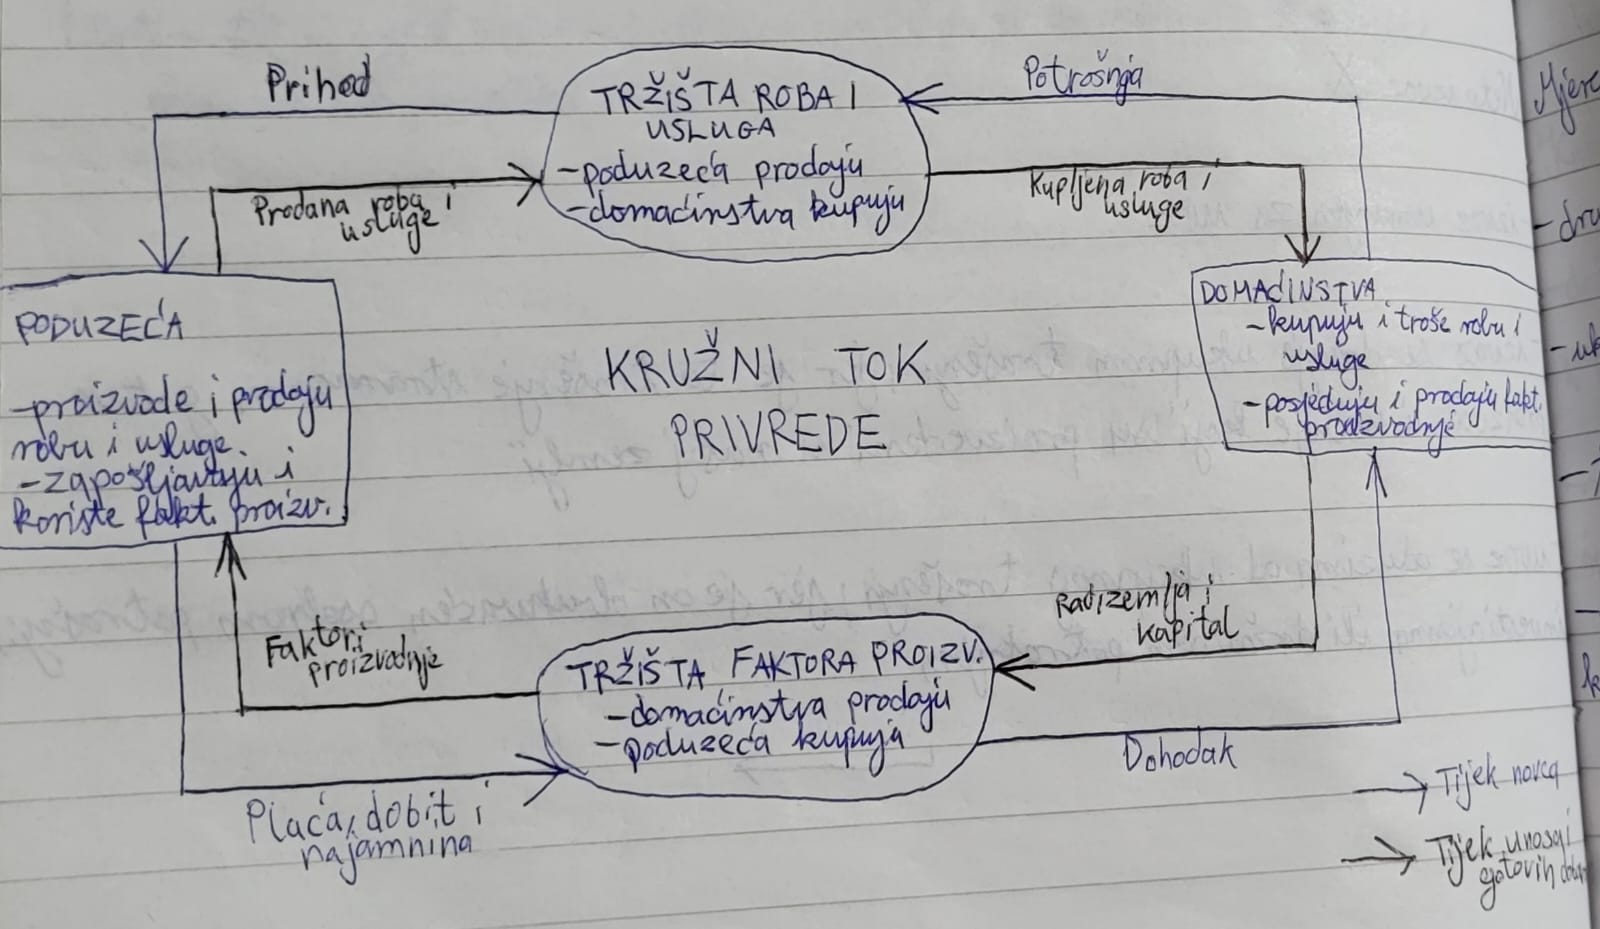 Prihod
TRŽIŠTA ROBA I
USLUGA
-poduzeća prodaju
-domaćinstva kupuju
Potrošnja
Prodana roba i
usluge
Kupljena roba i
usluge
PODUZEĆA
-proizvode i prodaju
robu i usluge.
-zapošljavaju i
koriste fakt. proizv.
KRUŽNI TOK
PRIVREDE
DOMAĆINSTVA
-kupuju i troše robu i
usluge
-posjeduju i prodaju fakt.
proizvodnje
Faktori
proizvodnje
TRŽIŠTA FAKTORA PROIZV.
-domaćinstva prodaju
-poduzeća kupuju
Rad, zemlja i
kapital
Plaća, dobit i
najamnina
Dohodak
→ Tijek novca
→ Tijek unosa i
gotovih
Mjere
- dru